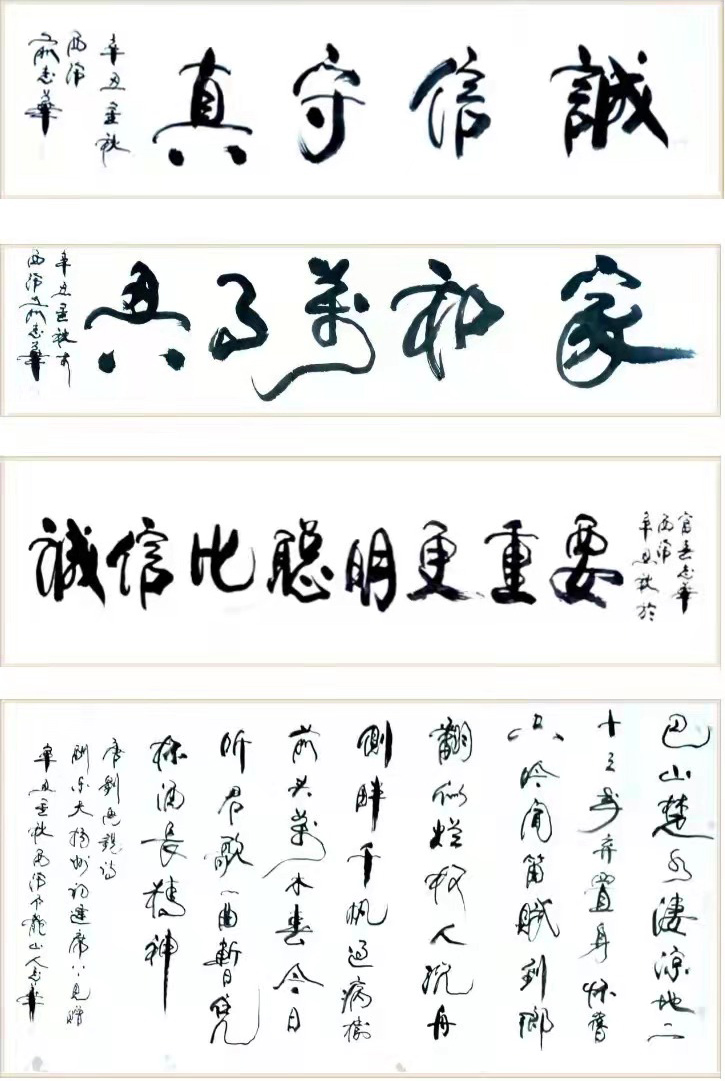 誠信守真
辛丑金秋
志華
家和萬事興
辛丑金秋於
志華
誠信比聰明更重要
富春志華
辛丑秋於
巴山楚水淒涼地二
十三年弃置身怀舊
空吟聞笛賦到鄉
翻似爛柯人沉舟
側畔千帆過病樹
前头萬木春今日
听君歌一曲暫凭
杯酒長精神
唐劉禹錫詩
酬乐天揚州初逢席上見贈
辛丑金秋山人志華